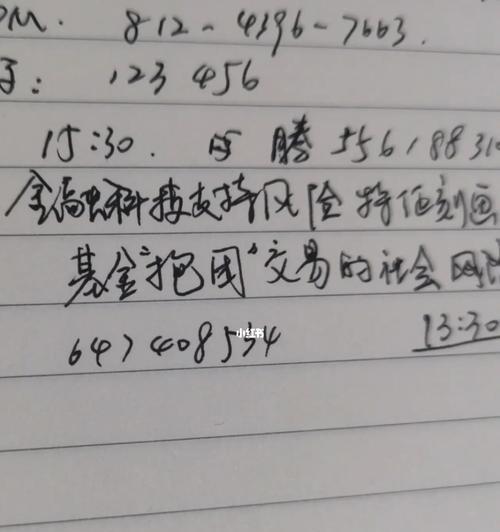 M. 812-4396-7663.
: 123 456
15:30. 腾 556 1883
金融科技支持风险特征刻画
基金"抱团"交易的社会网
小红书
647 408 534
13:30